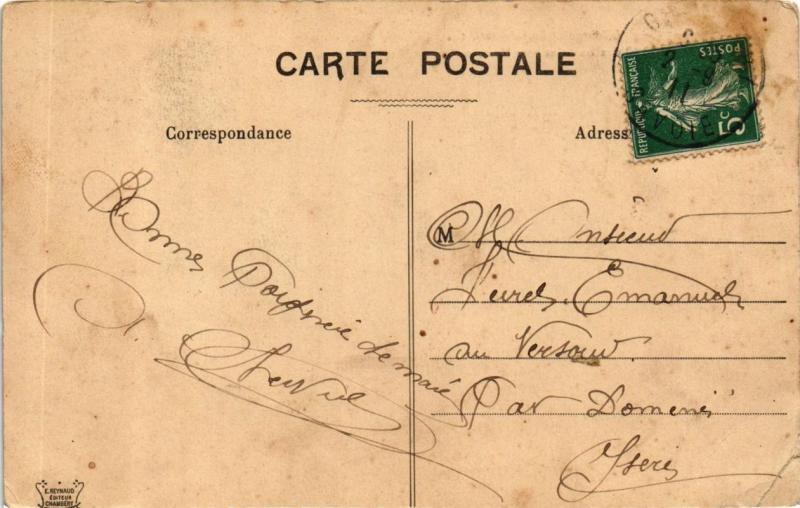 CARTE POSTALE
Correspondance
Adress
REPUBLIQUE FRANÇAISE
POSTES
5c
Bonnes
Poignée de main
M Monsieur
Emanuel
au Versoud
Par Domène
Isère
E. REYNAUD
ÉDITEUR
CHAMBÉRY